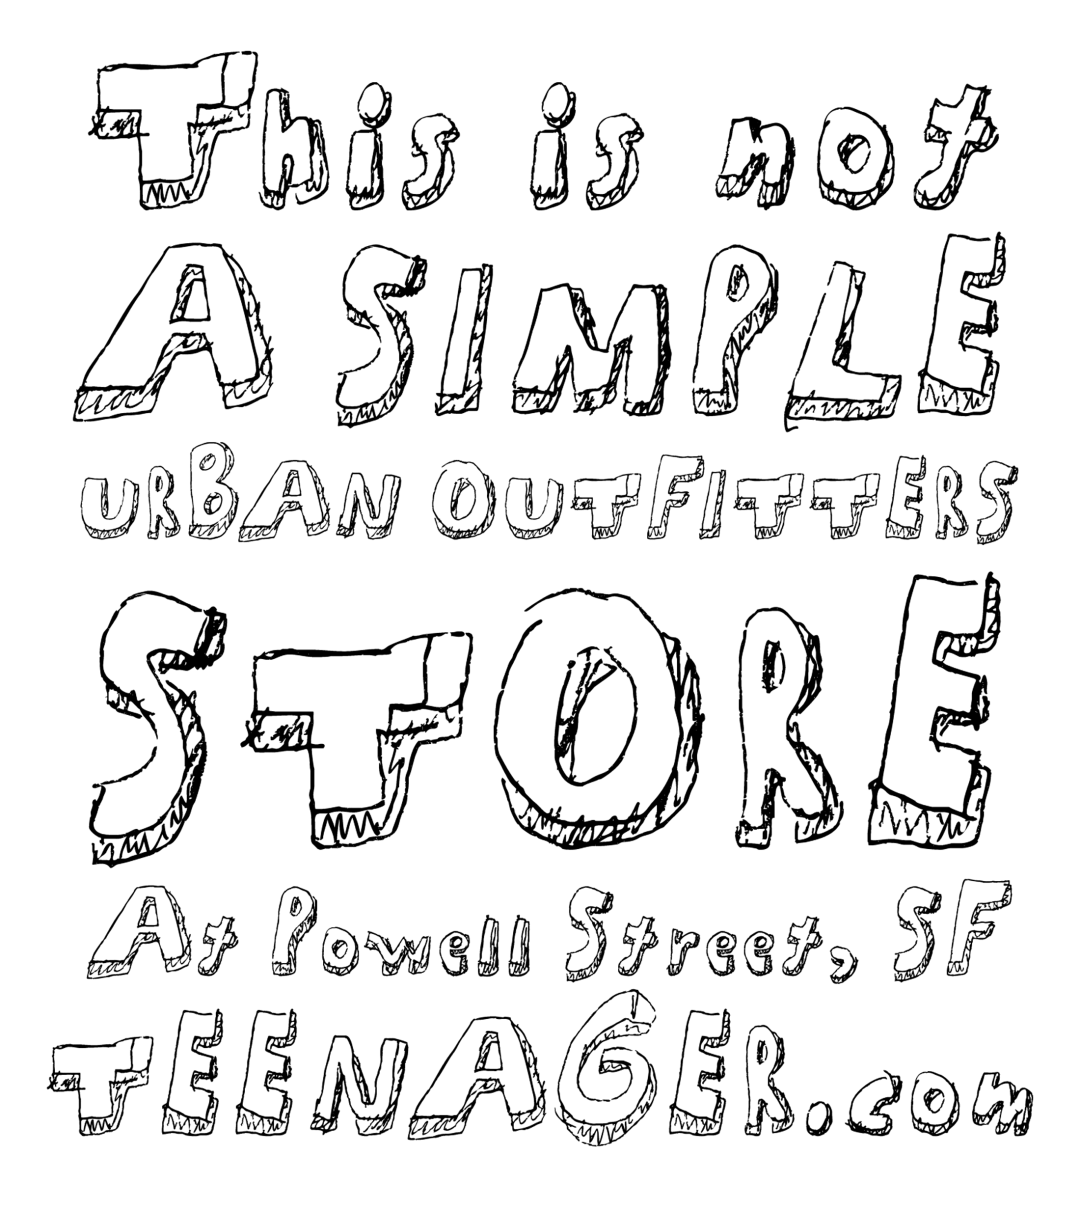 This is not
A SIMPLE
URBAN OUTFITTERS
STORE
At Powell Street, SF
TEENAGER.com